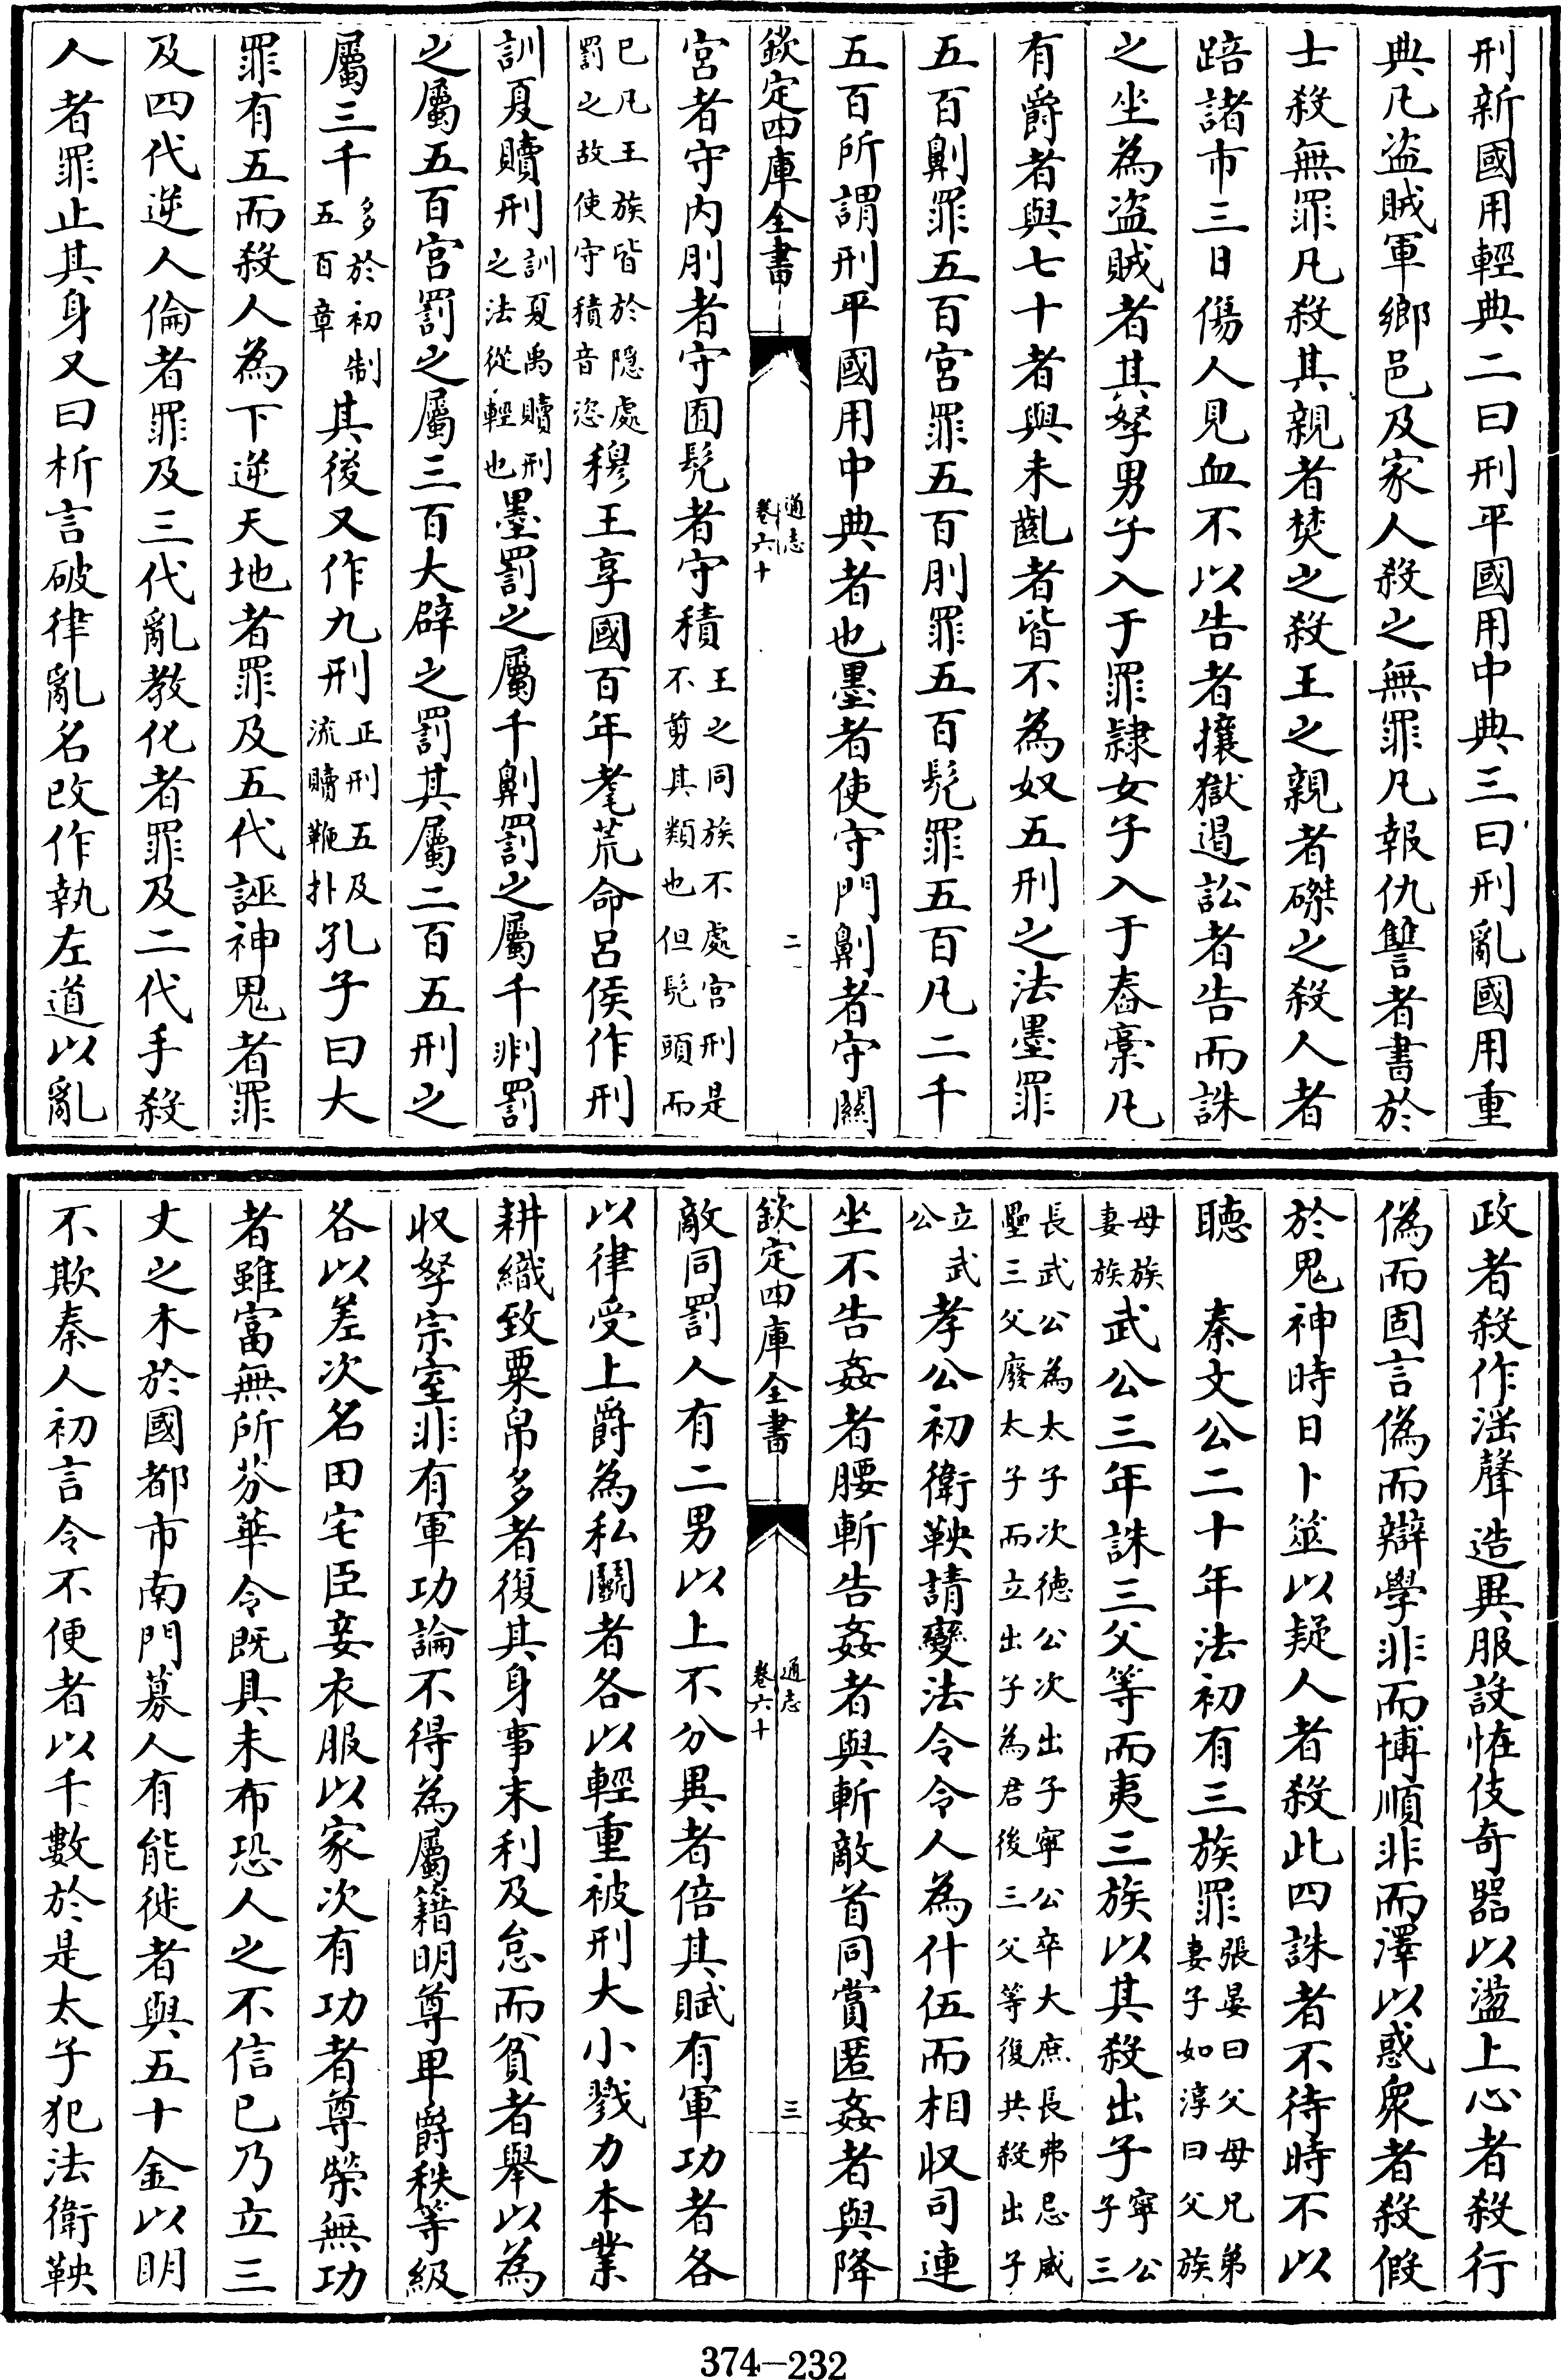 刑新國用輕典二曰刑平國用中典三曰刑亂國用重
典凡盜賊軍鄉邑及家人殺之無罪凡報仇讐者書於
士殺無罪凡殺其親者焚之殺王之親者磔之殺人者
踣諸市三日傷人見血不以告者攘獄遏訟者告而誅
之坐為盜賊者其孥男子入于罪隸女子入于舂槀凡
有爵者與七十者與未齓者皆不為奴五刑之法墨罪
五百劓罪五百宮罪五百刖罪五百髠罪五百凡二千
五百所謂刑平國用中典者也墨者使守門劓者守關
欽定四庫全書
通志
卷六十
二
宮者守内刖者守囿髠者守積王之同族不處宮刑是不剪其類也但髠頭而
已凡王族皆於隱處罰之故使守積音恣穆王享國百年耄荒命呂侯作刑
訓夏贖刑訓夏禹贖刑之法從輕也墨罰之屬千劓罰之屬千剕罰
之屬五百宮罰之屬三百大辟之罰其屬二百五刑之
屬三千多於初制五百章其後又作九刑正刑五及流贖鞭扑孔子曰大
罪有五而殺人為下逆天地者罪及五代誣神鬼者罪
及四代逆人倫者罪及三代亂教化者罪及二代手殺
人者罪止其身又曰析言破律亂名改作執左道以亂
政者殺作滛聲造異服設恠伎奇器以盪上心者殺行
偽而固言偽而辯學非而博順非而澤以惑衆者殺假
於鬼神時日卜筮以疑人者殺此四誅者不待時不以
聽 秦文公二十年法初有三族罪張晏曰父母兄弟妻子如淳曰父族
母族妻族武公三年誅三父等而夷三族以其殺出子寧公子三
長武公為太子次德公次出子寧公卒大庶長弗忌威壘三父廢太子而立出子為君後三父等復共殺出子
立武公孝公初衛鞅請變法令令人為什伍而相收司連
坐不告姦者腰斬告姦者與斬敵首同賞匿姦者與降
欽定四庫全書
通志
卷六十
三
敵同罰人有二男以上不分異者倍其賦有軍功者各
以律受上爵為私鬭者各以輕重被刑大小戮力本業
耕織致粟帛多者復其身事末利及怠而貧者舉以為
収孥宗室非有軍功論不得為屬籍明尊卑爵秩等級
各以差次名田宅臣妾衣服以家次有功者尊榮無功
者雖富無所芬華令既具未布恐人之不信已乃立三
丈之木於國都市南門募人有能徙者與五十金以明
不欺秦人初言令不便者以千數於是太子犯法衛鞅
374-232